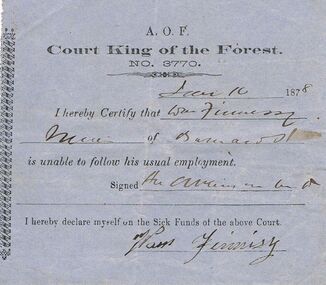 A. O. F.
Court King of the Forest.
NO. 3770.
June 10 1878
I hereby Certify that Wm Finnessy
of Barnard St
is unable to follow his usual employment.
Signed
I hereby declare myself on the Sick Funds of the above Court.
Wm Finnisy